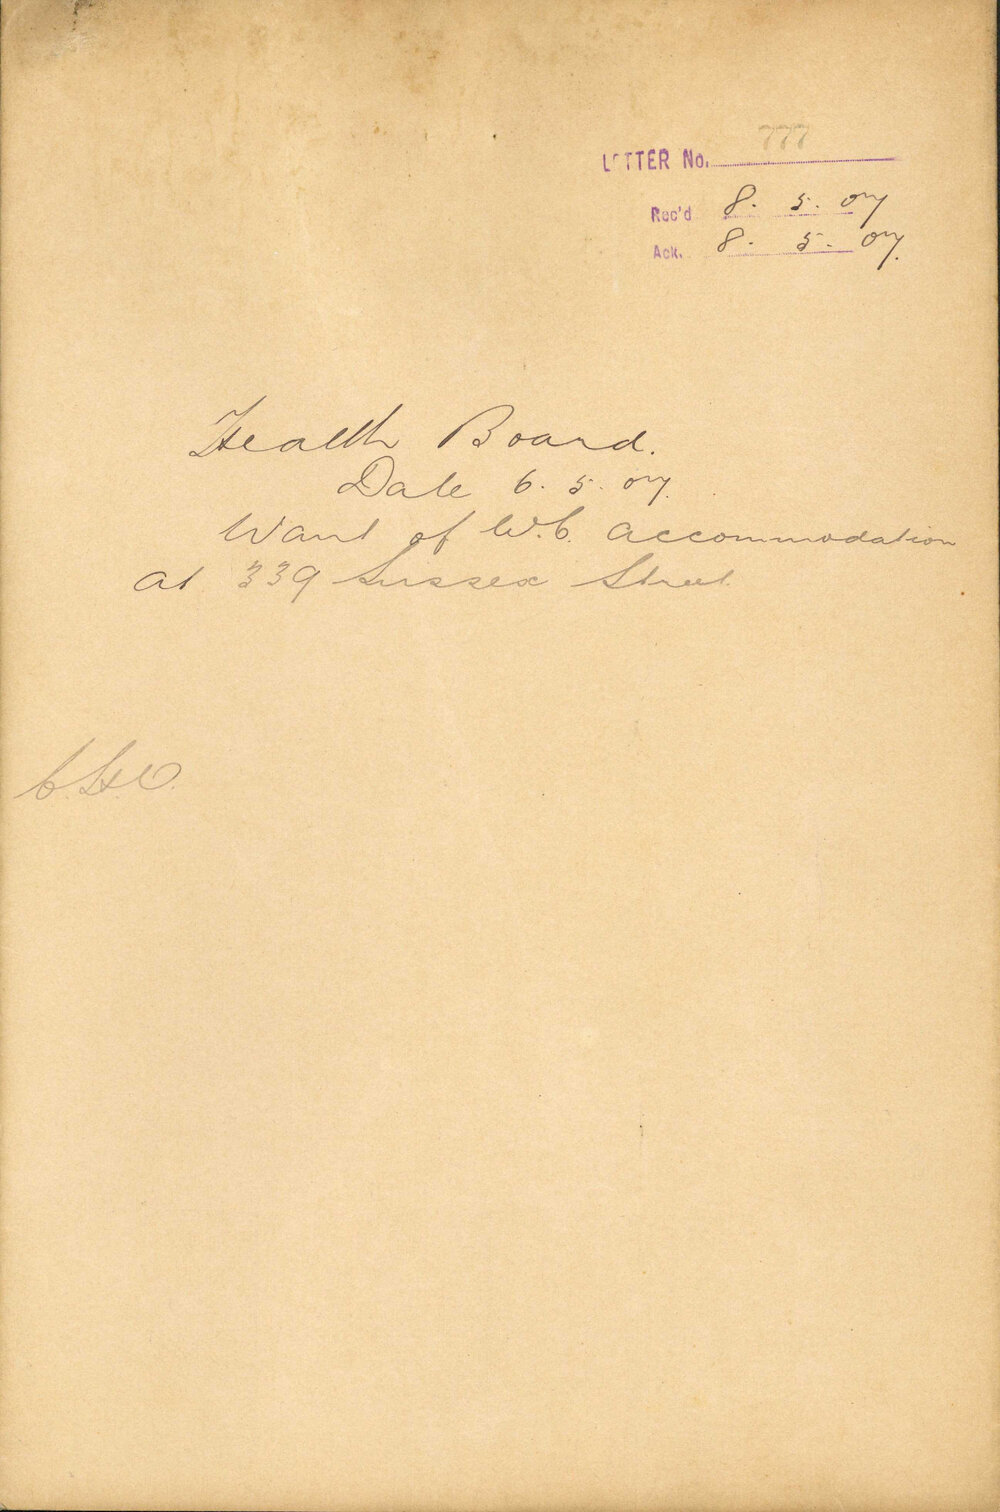 LETTER No. 777
Rec'd 8. 5. 07
Ack. 8. 5. 07.
Health Board.
Date 6. 5. 07.
Want of W.C. accommodation
at 339 Sussex Street.